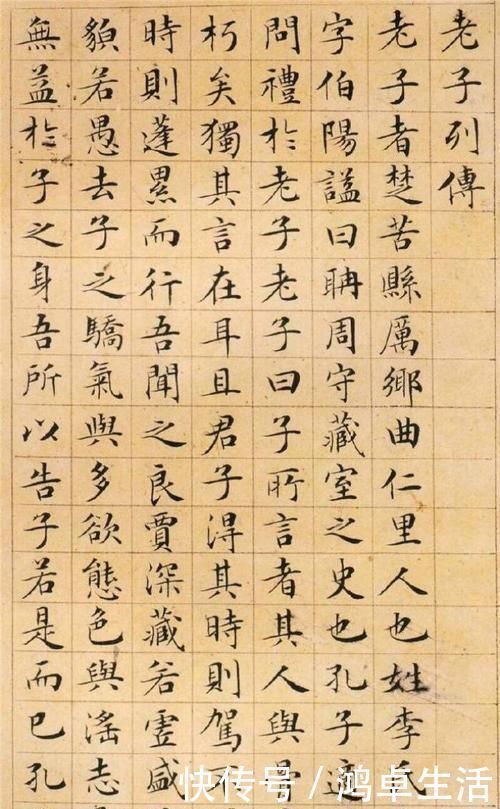 老子列傳
老子者楚苦縣厲鄉曲仁里人也姓李氏
字伯陽諡曰聃周守藏室之史也孔子適
問禮於老子老子曰子所言者其人與骨
朽矣獨其言在耳且君子得其時則駕不
時則蓬累而行吾聞之良賈深藏若虛盛
貌若愚去子之驕氣與多欲態色與淫志
無益於子之身吾所以告子若是而已孔
快传号 / 鸿卓生活